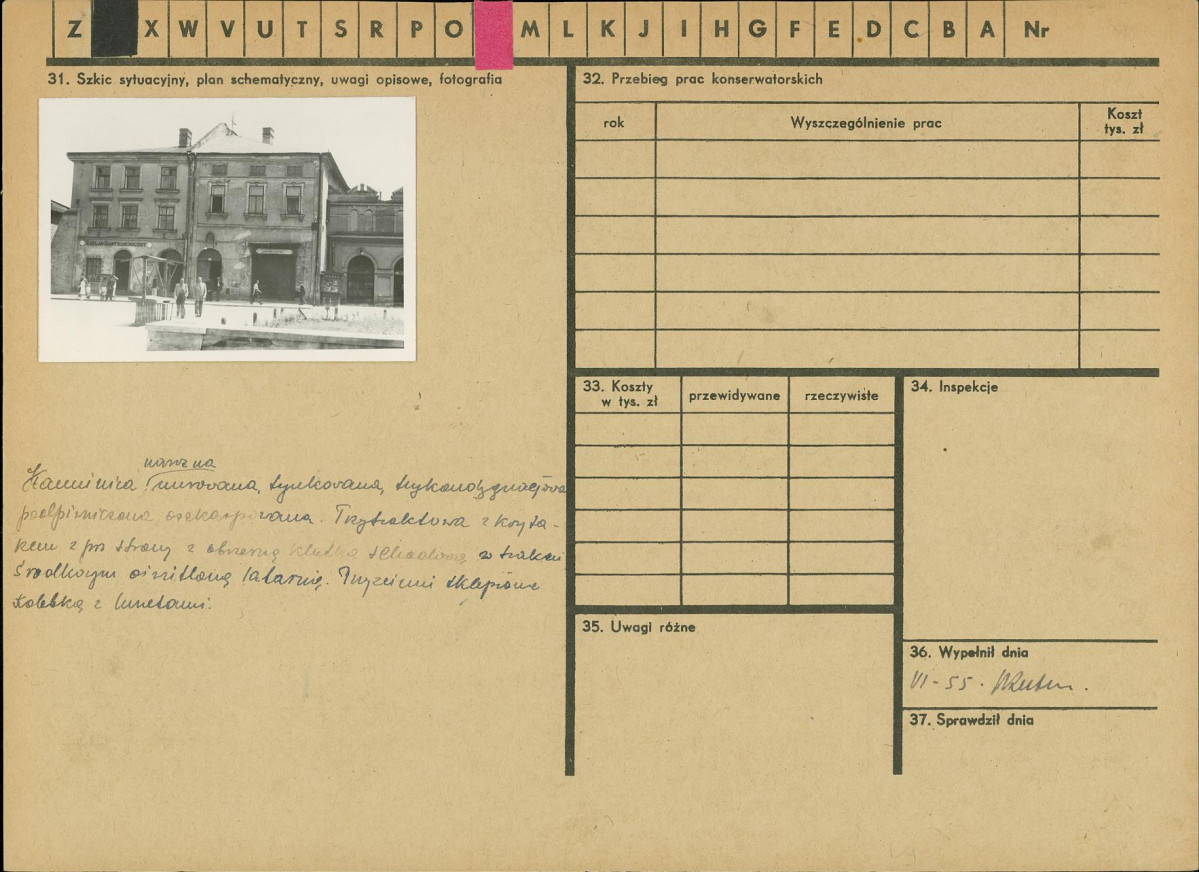 Z X W V U T S R P O M L K J I H G F E D C B A Nr
31. Szkic sytuacyjny, plan schematyczny, uwagi opisowe, fotografia
narożna
Kamienica murowana, tynkowana, trzykondygnacjowa
podpiwniczona, oszkarpowana. Trzytraktowa z koryta-
rzem z pr strony z obszerną klatką schodową w trakcie
środkowym oświetloną latarnią. Przyziemi sklepione
kolebką z lunetami.
32. Przebieg prac konserwatorskich
rok Wyszczególnienie prac Koszt tys. zł
33. Koszty w tys. zł przewidywane rzeczywiste
34. Inspekcje
35. Uwagi różne
36. Wypełnił dnia
VI - 55.
37. Sprawdził dnia